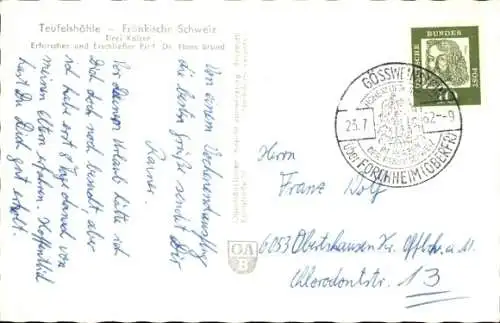 Teufelshöhle – Fränkische Schweiz
Drei Kaiser
Erforscher und Erschließer Prof. Dr. Hans Brand
Von einem Wochenendausflug
die besten Grüße sendet Dir
Rainer.
Vor Deinem Urlaub hätte ich
Dich doch noch besucht aber
ich habe erst 8 Tage danach von
meinen Eltern erfahren. Hoffentlich
hast Du Dich gut erholt.
DEUTSCHE BUNDESPOST
10
GÖSSWEINSTEIN
25.7. 62-9
über FORCHHEIM (OBERFR)
Herrn
Franz Wolf
6053 Obertshausen Kr. Offb. a. M.
Chlorodontstr. 13